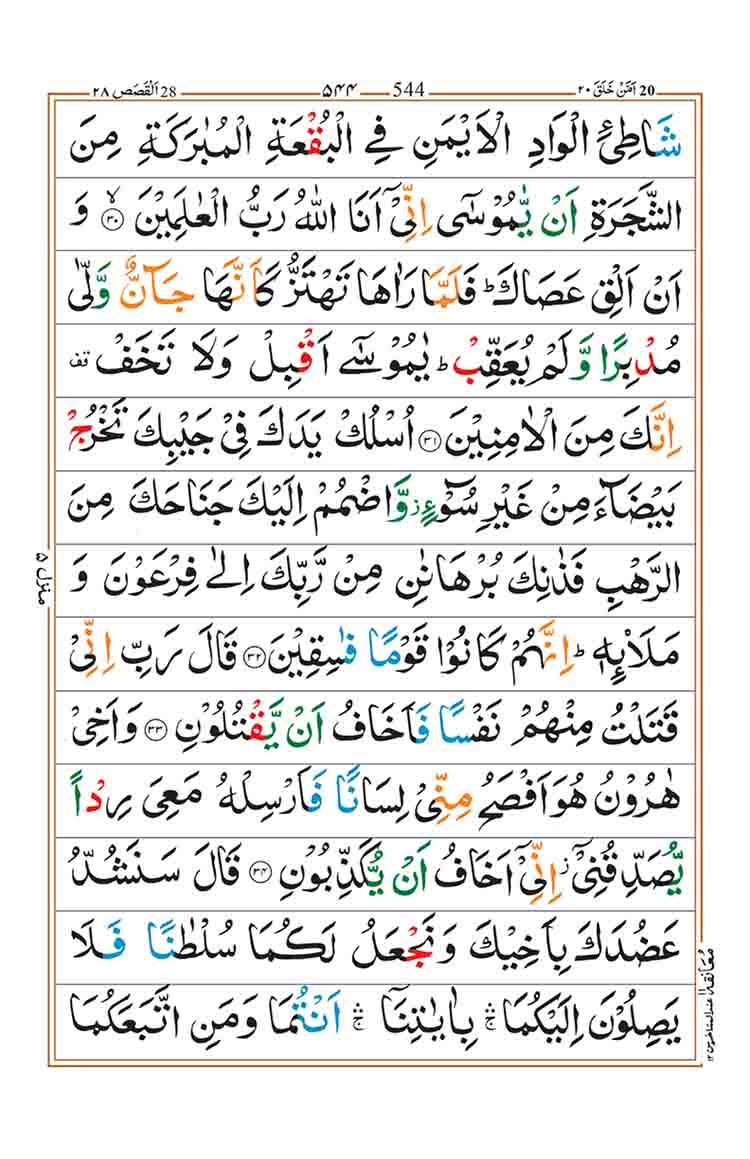 20 اَمَّنْ خَلَقَ ۲۰ 544 ۵۴۴ 28 اَلْقَصَص ۲۸
شَاطِئِ الْوَادِ الْاَيْمَنِ فِي الْبُقْعَةِ الْمُبٰرَكَةِ مِنَ
الشَّجَرَةِ اَنْ يّٰمُوْسٰۤى اِنِّيْۤ اَنَا اللّٰهُ رَبُّ الْعٰلَمِيْنَ ۙ‏﴿۳۰﴾ وَ
اَنْ اَلْقِ عَصَاكَ ؕ فَلَمَّا رَاٰهَا تَهْتَزُّ كَاَنَّهَا جَآنٌّ وَّلّٰى
مُدْبِرًا وَّلَمْ يُعَقِّبْ ؕ يٰمُوْسٰۤى اَقْبِلْ وَلَا تَخَفْ قف
اِنَّكَ مِنَ الْاٰمِنِيْنَ ﴿۳۱﴾ اُسْلُكْ يَدَكَ فِيْ جَيْبِكَ تَخْرُجْ
بَيْضَآءَ مِنْ غَيْرِ سُوْٓءٍ ز وَّاضْمُمْ اِلَيْكَ جَنَاحَكَ مِنَ
الرَّهْبِ فَذٰنِكَ بُرْهَانٰنِ مِنْ رَّبِّكَ اِلٰى فِرْعَوْنَ وَ
مَلَا۟ئِهٖ ؕ اِنَّهُمْ كَانُوْا قَوْمًا فٰسِقِيْنَ ﴿۳۲﴾ قَالَ رَبِّ اِنِّيْ
قَتَلْتُ مِنْهُمْ نَفْسًا فَاَخَافُ اَنْ يَّقْتُلُوْنِ ﴿۳۳﴾ وَاَخِيْ
هٰرُوْنُ هُوَ اَفْصَحُ مِنِّيْ لِسَانًا فَاَرْسِلْهُ مَعِيَ رِدْاً
يُّصَدِّقُنِيْۤ ز اِنِّيْۤ اَخَافُ اَنْ يُّكَذِّبُوْنِ ﴿۳۴﴾ قَالَ سَنَشُدُّ
عَضُدَكَ بِاَخِيْكَ وَنَجْعَلُ لَكُمَا سُلْطٰنًا فَلَا
يَصِلُوْنَ اِلَيْكُمَا ۛۚ بِاٰيٰتِنَاۤ ۛۚ اَنْتُمَا وَمَنِ اتَّبَعَكُمَا
منزل ۵
معانقة ۱۱ عند المتاخرين ۱۲